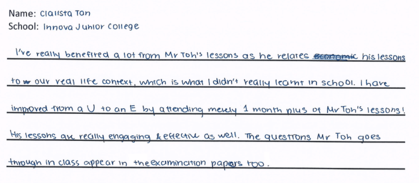 Name: Clalista Tan
School: Innova Junior College
I've really benefited a lot from Mr Toh's lessons as he relates his lessons
to our real life context, which is what I didn't really learnt in school. I have
improved from a U to an E by attending merely 1 month plus of Mr Toh's lessons!
His lessons are really engaging & effective as well. The questions Mr Toh goes
through in class appear in the examination papers too.